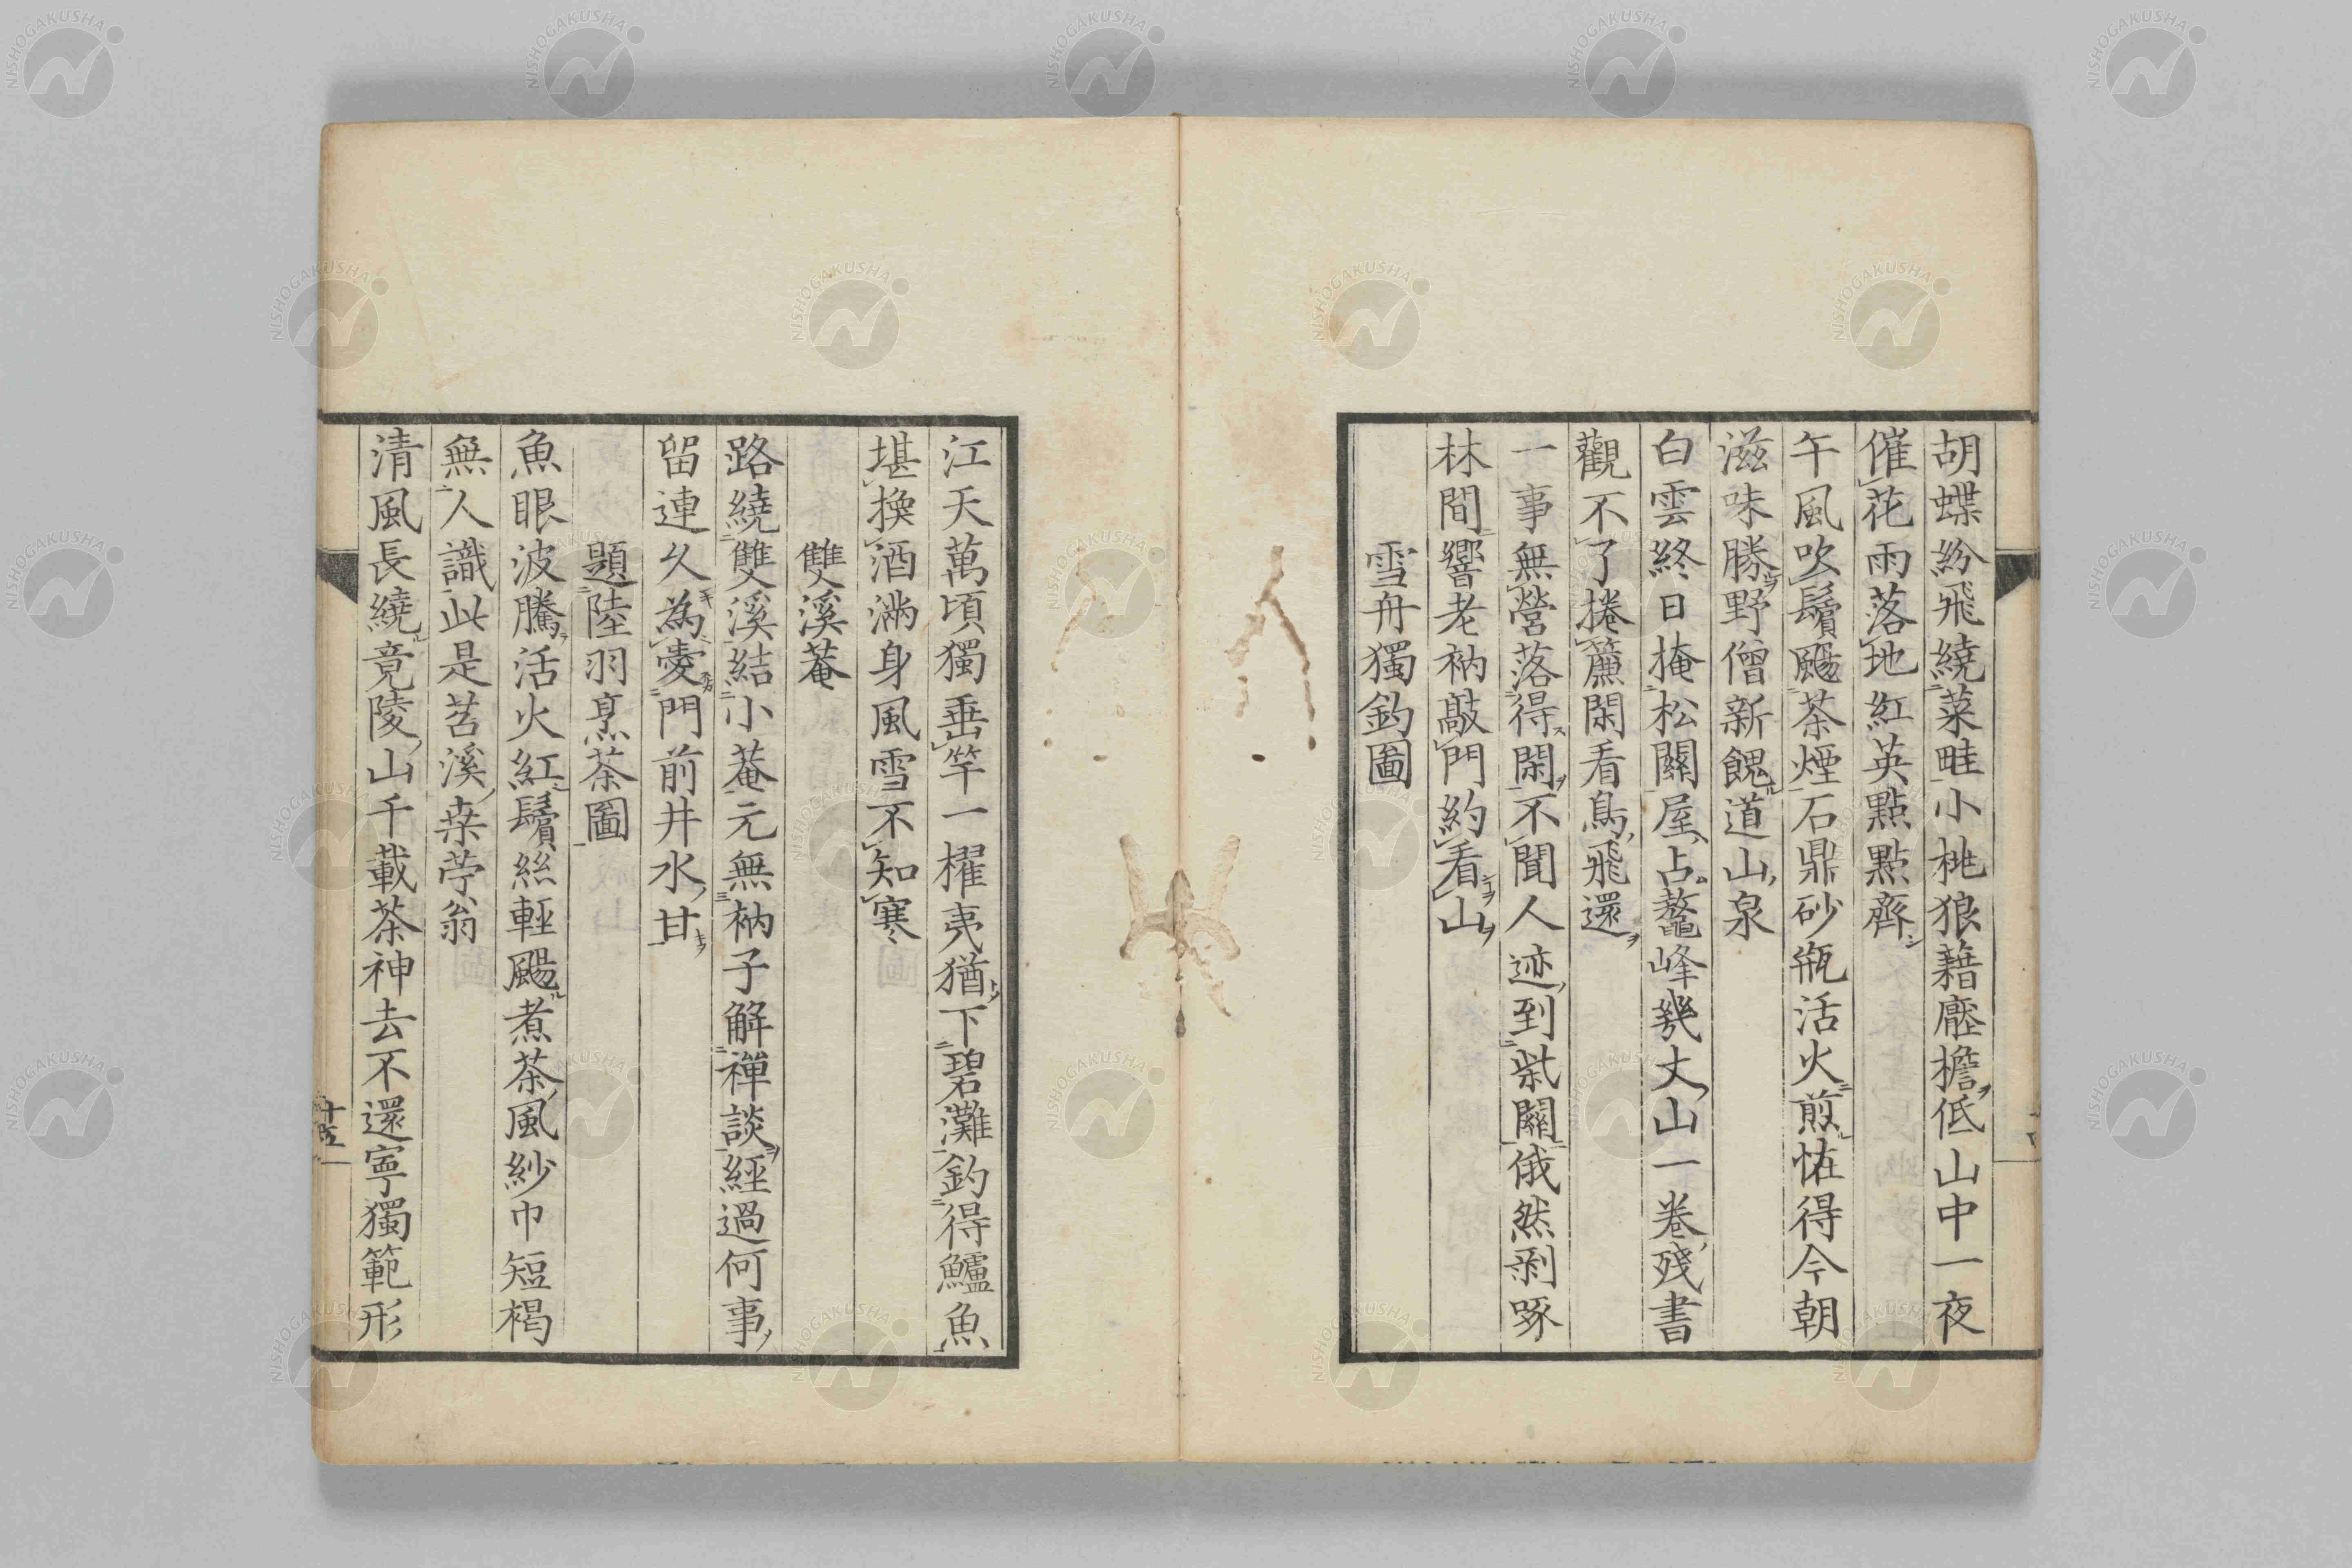 胡蝶紛飛繞菜畦小桃狼藉壓檐低山中一夜
催花雨落地紅英點點齊
午風吹鬢颺茶煙石鼎砂瓶活火煎恠得今朝
滋味勝野僧新餽道山泉
白雲終日掩松關屋占鼇峰幾丈山一卷殘書
觀不了捲簾閑看鳥飛還
一事無營落得閑不聞人迹到柴關俄然剥啄
林間響老衲敲門約看山
雪舟獨釣圖
江天萬頃獨垂竿一櫂夷猶下碧灘釣得鱸魚
堪換酒滿身風雪不知寒
雙溪菴
路繞雙溪結小菴元無衲子解禪談經過何事
留連久為愛門前井水甘
題陸羽烹茶圖
魚眼波騰活火紅鬢絲輕颺煮茶風紗巾短褐
無人識此是苕溪桒苧翁
清風長繞竟陵山千載茶神去不還寧獨範形
十五
NISHOGAKUSHA